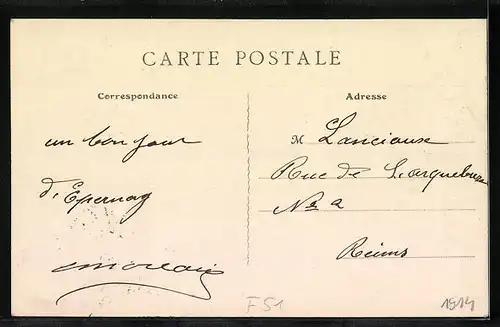 CARTE POSTALE
Correspondance
un bonjour
d'Epernay
Adresse
M Lanciaux
Rue de L'arquebuse
No 2
Reims
F51
1914